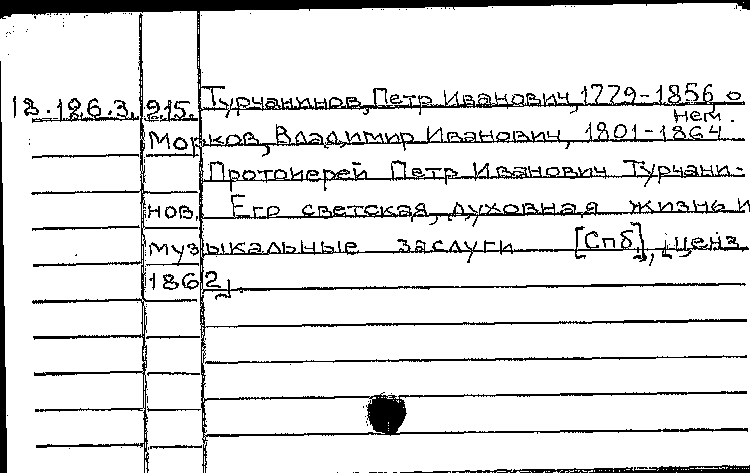 18.186.3.215. Турчанинов, Петр Иванович, 1779-1856, о нем.
Морков, Владимир Иванович, 1801-1864
Протоиерей Петр Иванович Турчани-
нов. Его светская, духовная жизнь и
музыкальные заслуги [Спб], [ценз.
1862].